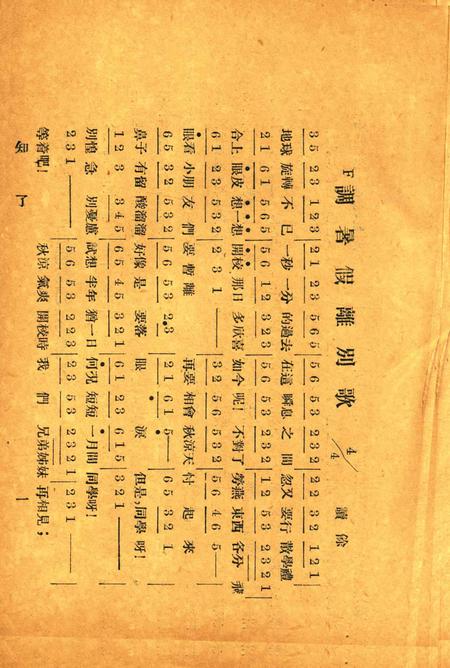 F調 暑假離別歌 4/4 讀餘
3 5 2 3 1 2 3 | 2 1 2 3 5 6 5 | 5 6 5 3 2 3 2 | 2 2 3 2 1 2 1 |
地球 旋轉 不 已 一秒 一分 的過去 在這 瞬息 之 間 忽又 要行 散學禮
2 1 6 1 5 6 5 | 5 6 1 2 3 2 3 | 5 6 5 3 2 3 2 | 1 2 5 3 2 3 2 1 |
合上 眼皮 想一想 開校 那日 多欣喜 如今 呢! 不對了 勞燕 東西 各分 飛
6 1 2 3 5 3 2 | 2 3 1 — | 3 2 5 6 5 3 2 | 5 6 4 6 5 — |
眼看 小朋 友們 要暫 離 再要 相會 秋涼天 忖 起 來
6 5 3 2 5 3 2 | 5 6 5 3 2.3 | 2 1 6 1 5 — | 6 5 3 2 1. |
鼻子 有留 酸溜溜 好像 是 要落 眼 淚 但是,同學 呀!
1 2 3 3 4 5 | 6 5 4 5 3 2 1 | 6 1 2 3 6 1 5 | 3 2 1 — |
別惶 急 別憂慮 試想 半年 猶一日 何況 短短 一月間 同學呀!
2 3 1 — | 5 6 5 3 2 2 3 | 2 3 5 3 2 3 2 1 | 2 3 1 — |
等着吧! 秋涼 氣爽 開校時 我 們 兄弟 姊妹 再相見;